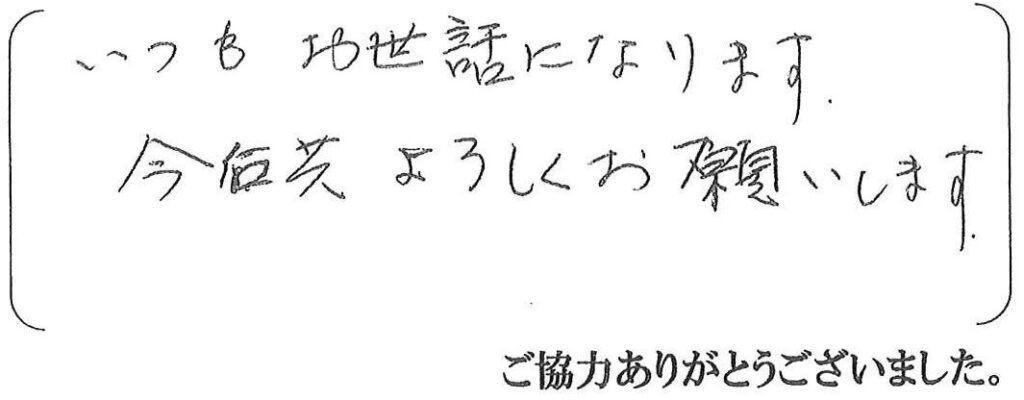 いつもお世話になります.
今后共よろしくお願いします.
ご協力ありがとうございました。